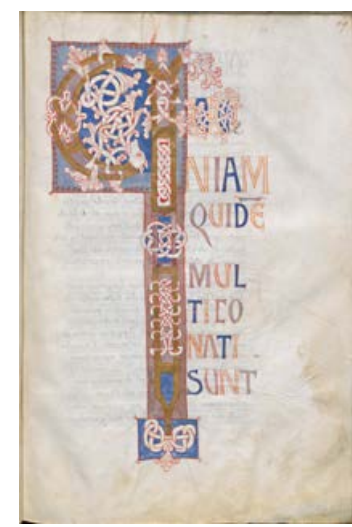 Q
NIAM
QUIDĒ
MUL
TI CO
NATI
SUNT